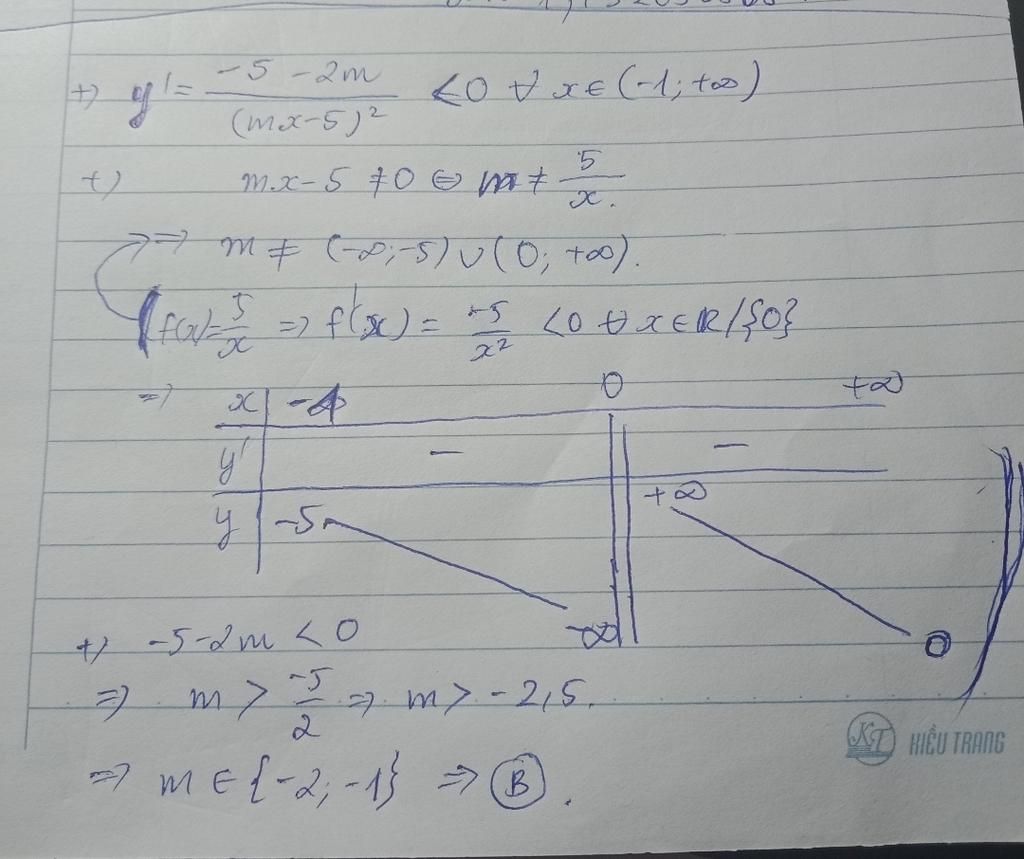 +) y' = \frac{-5-2m}{(mx-5)^2} < 0 ∀ x ∈ (-1; +∞)
+) m.x - 5 ≠ 0 ⇔ m ≠ \frac{5}{x}.
=> m ≠ (-∞; -5) ∪ (0; +∞).
(f(x) = \frac{5}{x} => f'(x) = \frac{-5}{x^2} < 0 ∀ x ∈ R/{0}
=> x | -1 0 +∞
y' | - || -
y | -5 -∞ || +∞ 0 )
+) -5-2m < 0
=> m > \frac{-5}{2} => m > -2,5.
=> m ∈ {-2; -1} => B.
KT KIỀU TRANG